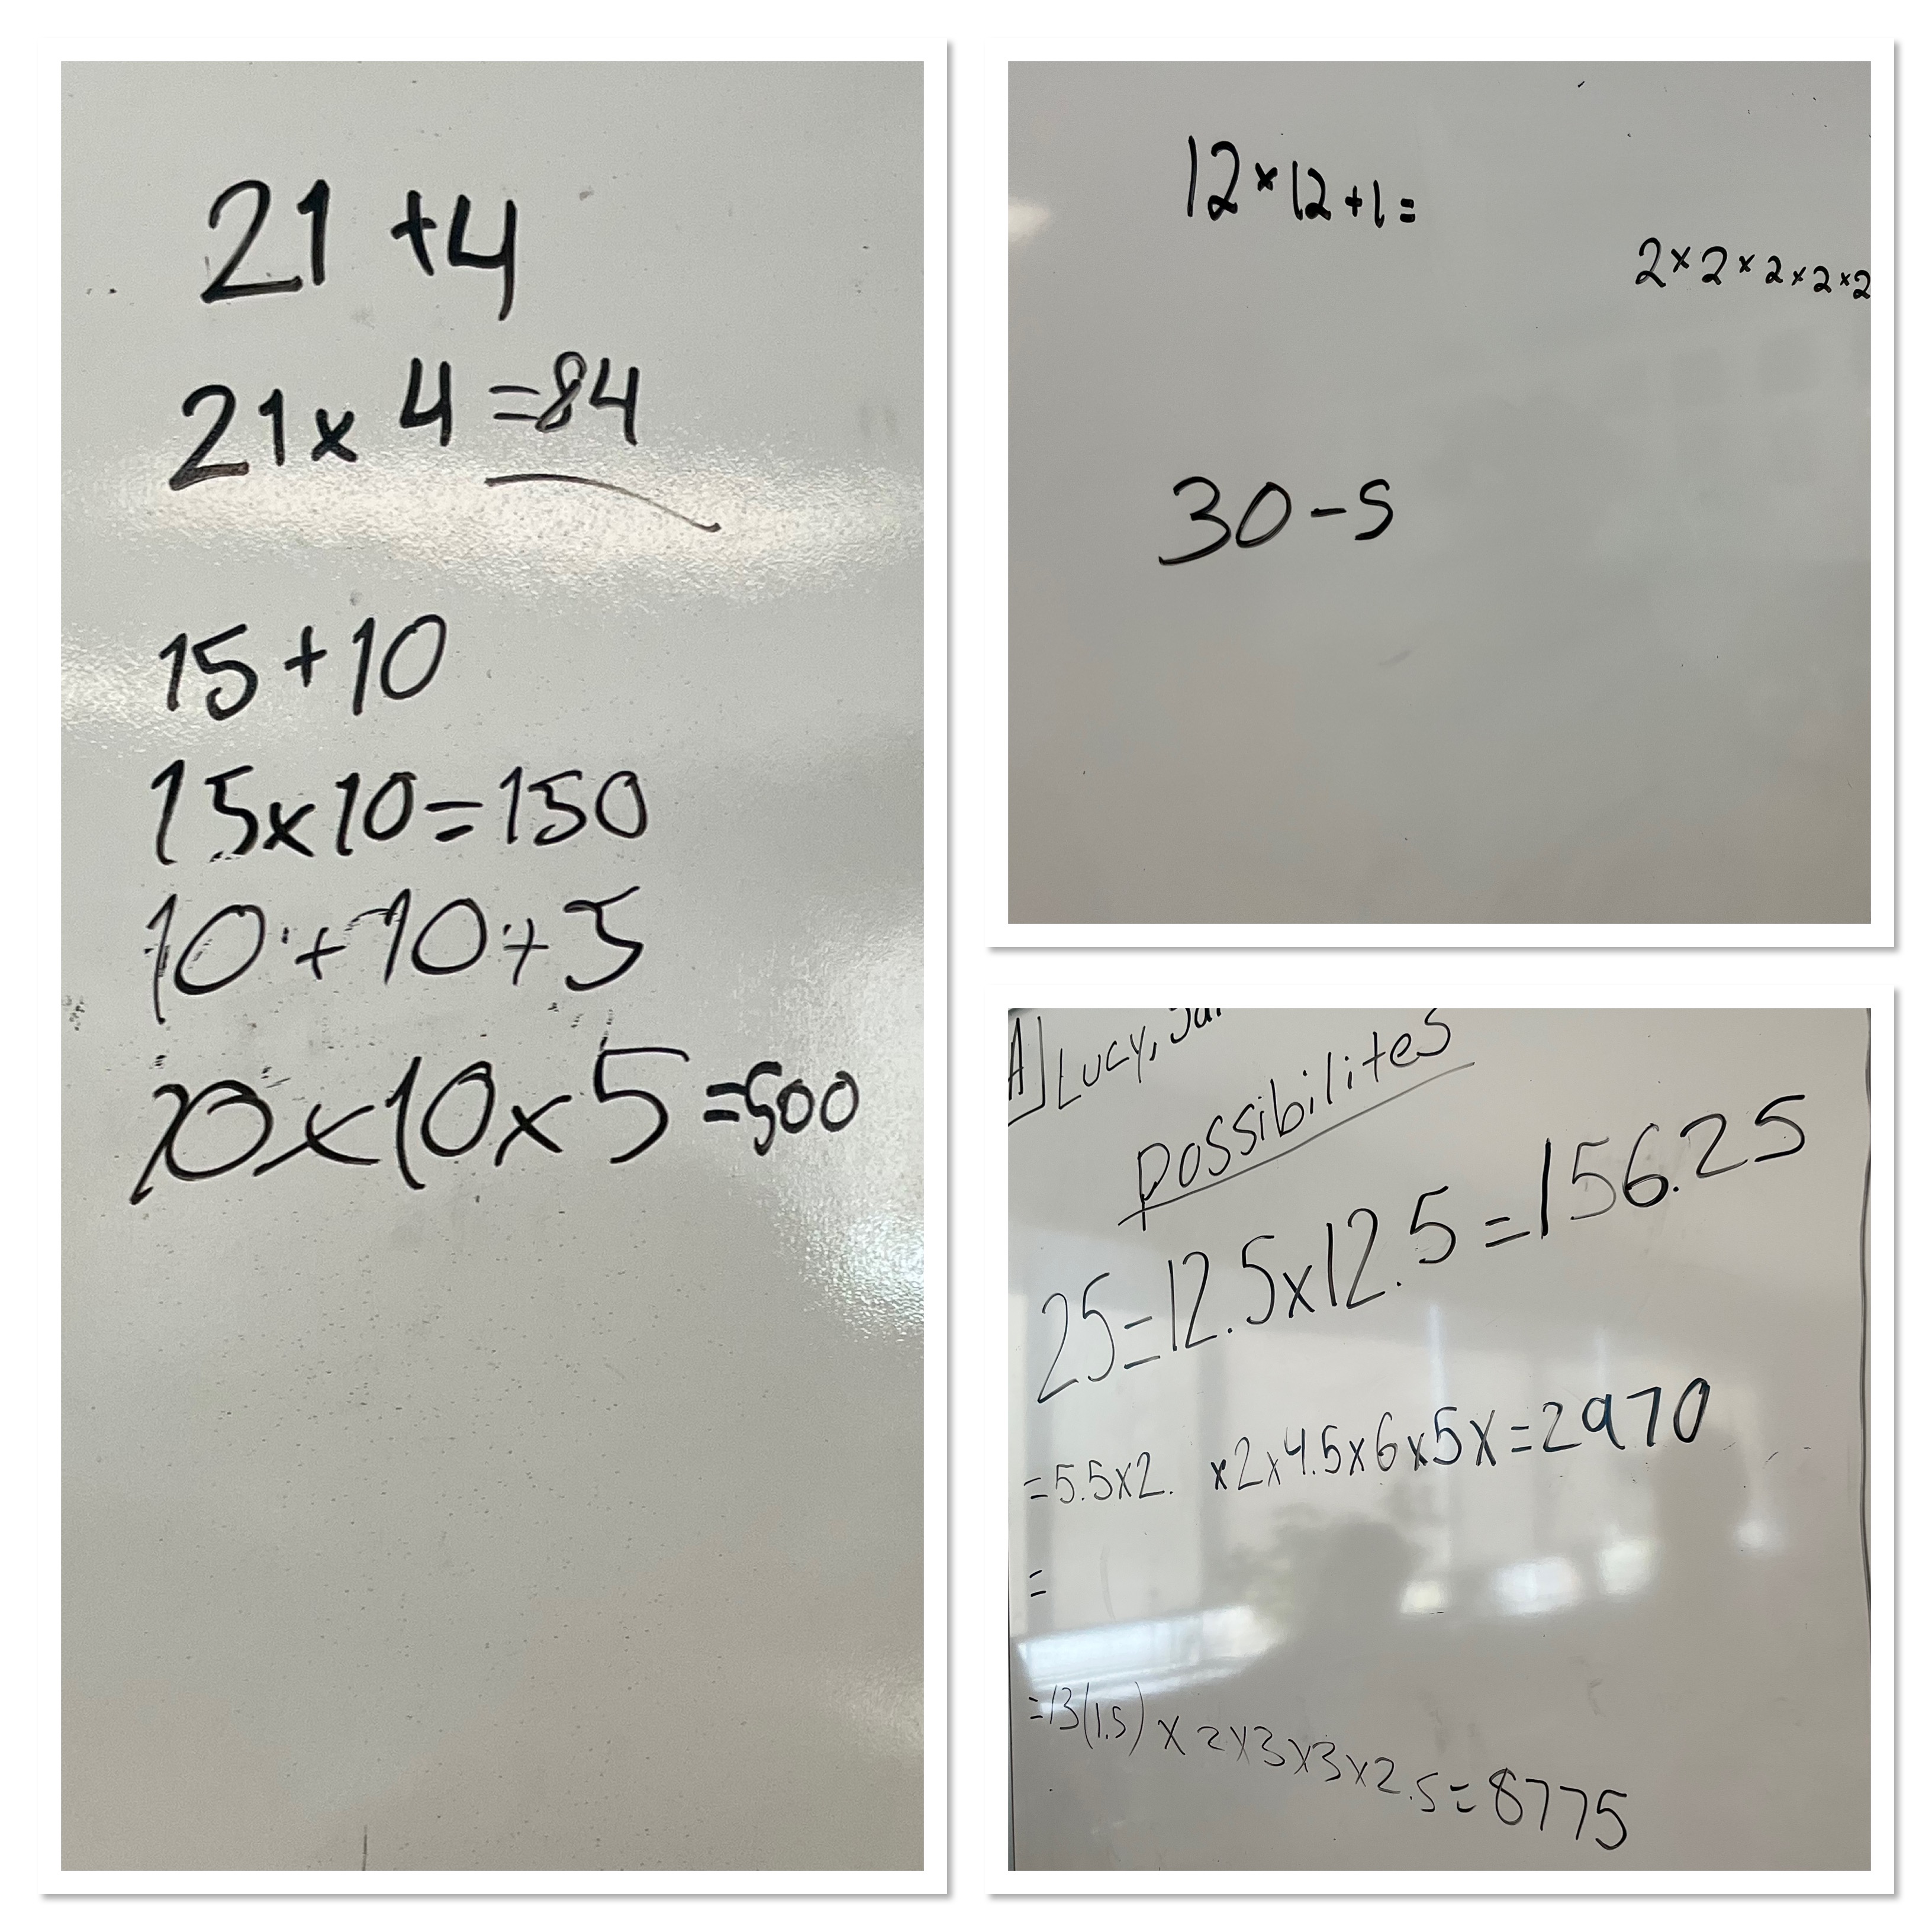 21 + 4
21 x 4 = 84
15 + 10
15 x 10 = 150
10 + 10 + 5
10 x 10 x 5 = 500
12 x 12 + 1 =
2 x 2 x 2 x 2 x 2
30 - 5
A] Lucy,
possibilites
25 = 12.5 x 12.5 = 156.25
= 5.5 x 2. x 2 x 4.5 x 6 x 5 x = 2970
=
= 13(1.5) x 2 x 3 x 3 x 2.5 = 8775